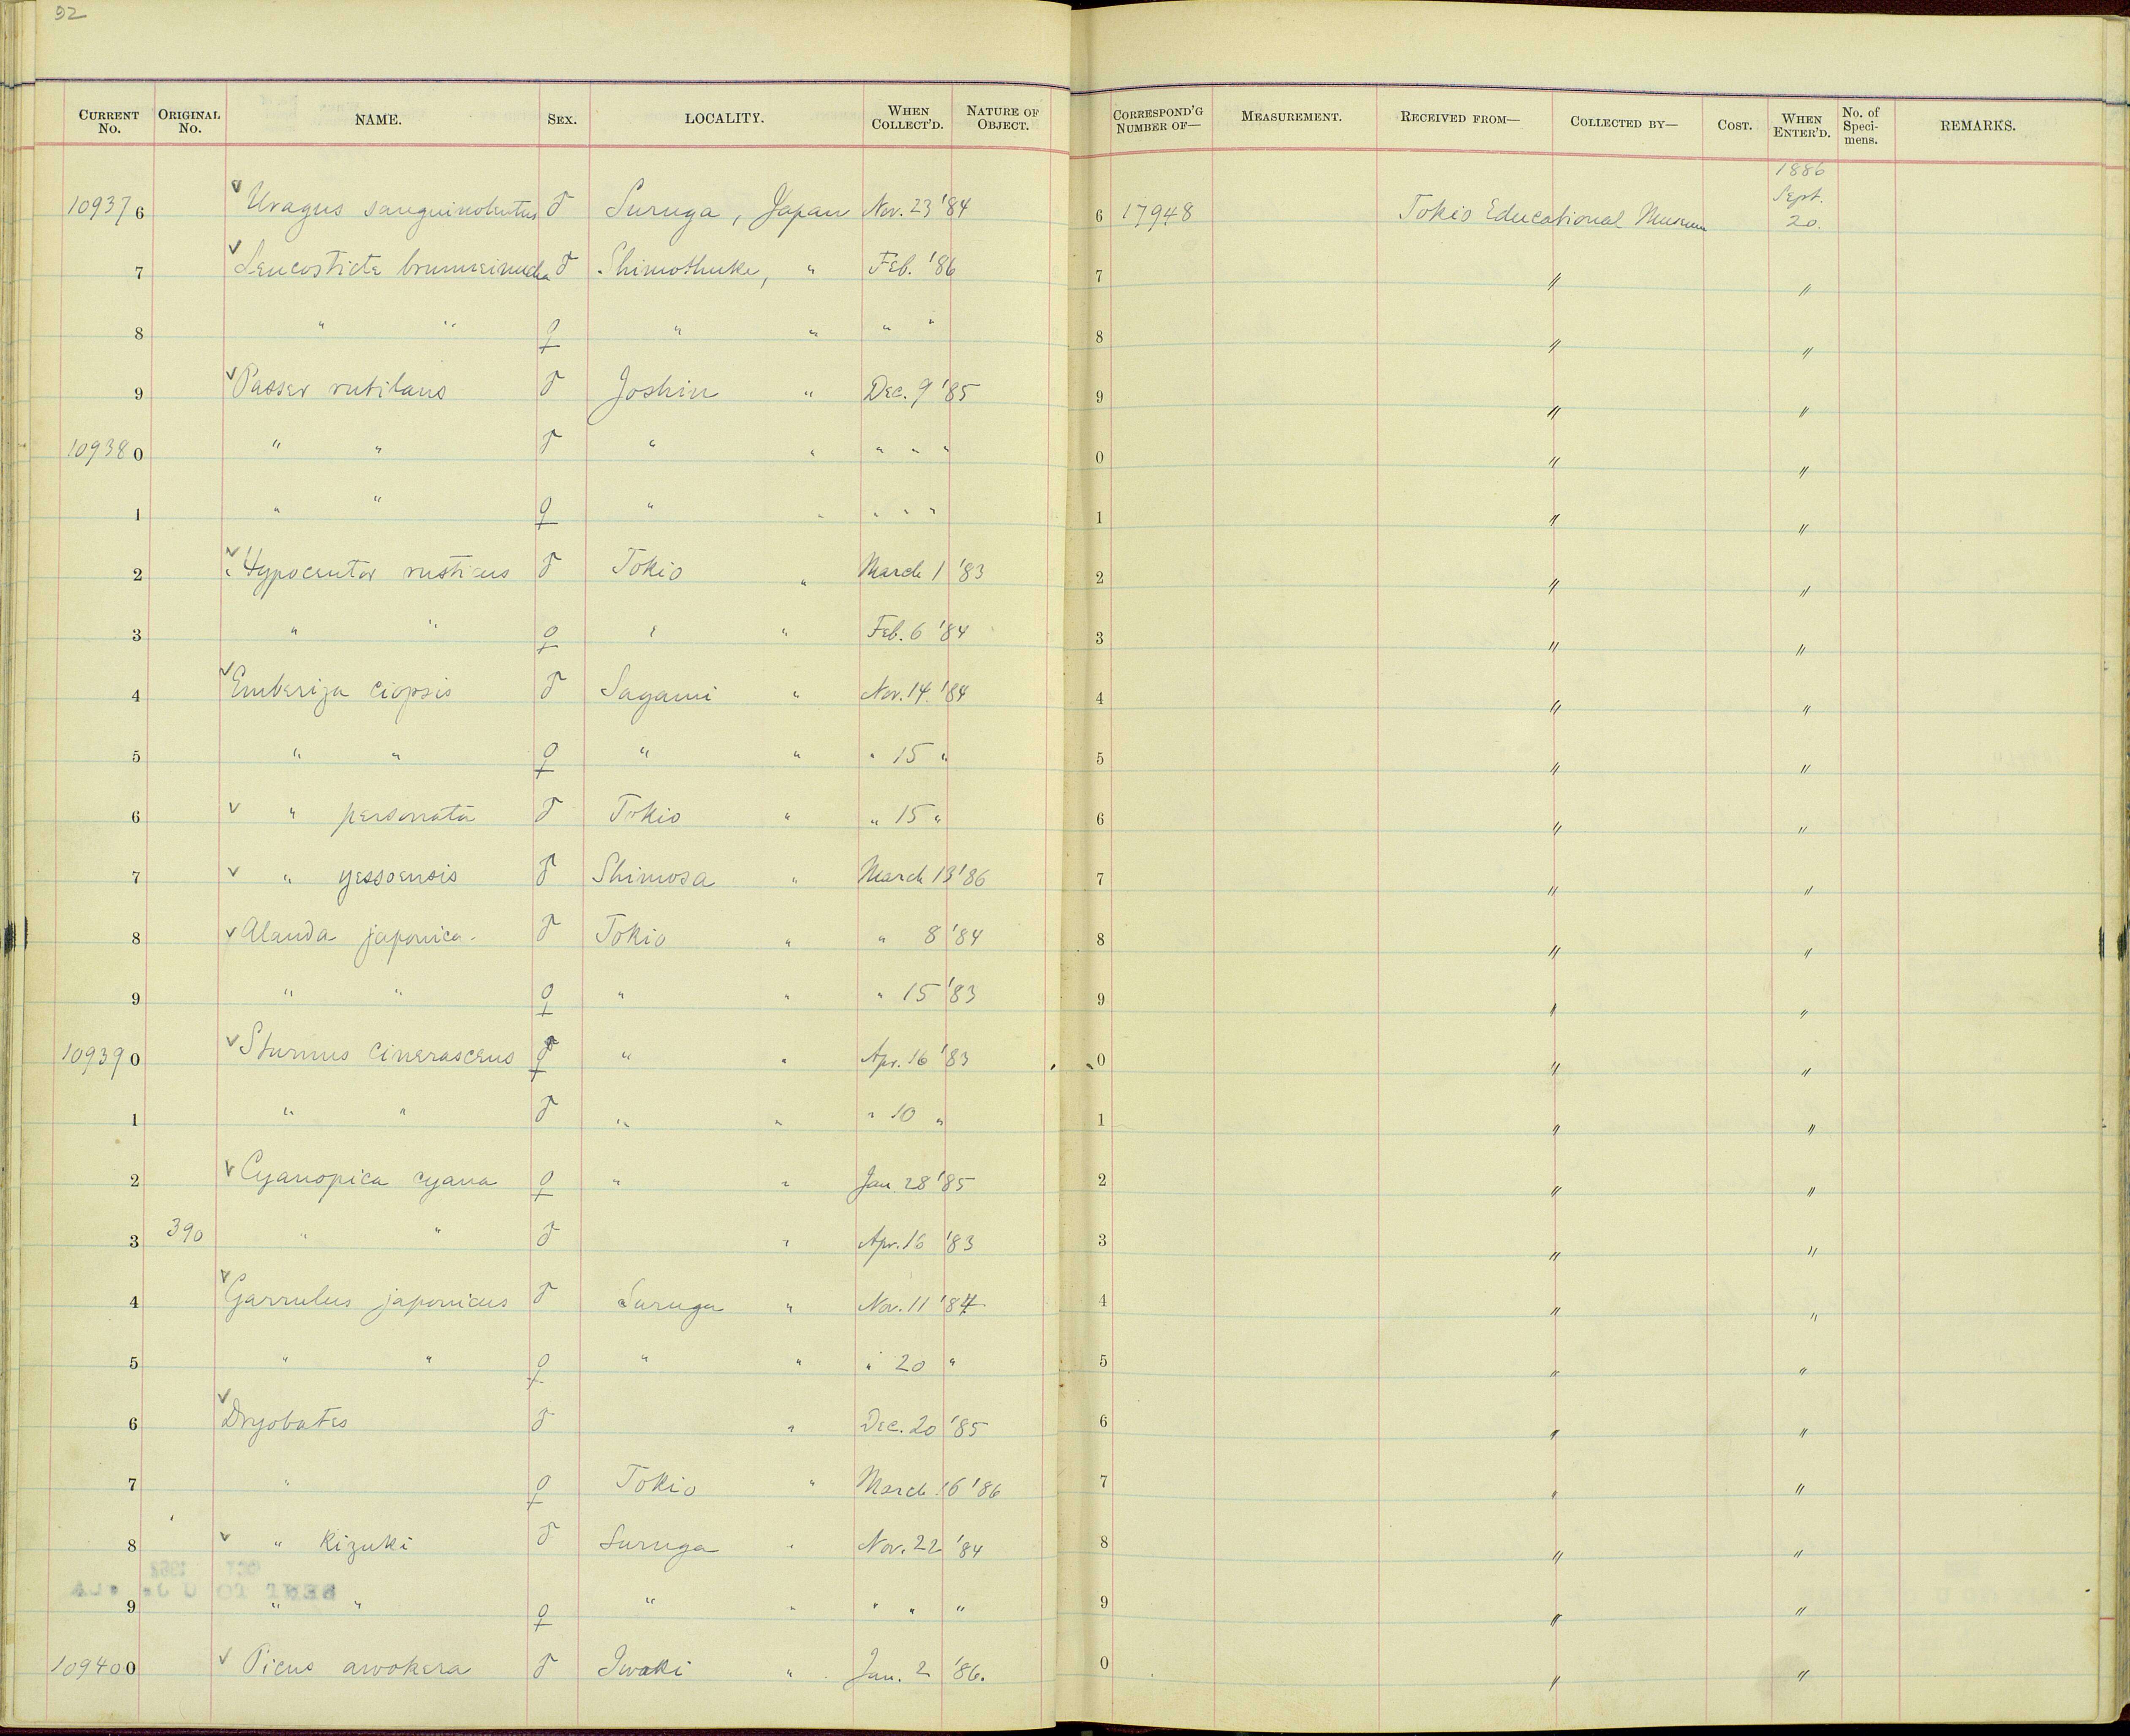 92
CURRENT No. ORIGINAL No. NAME. SEX. LOCALITY. WHEN COLLECT'D. NATURE OF OBJECT. CORRESPOND'G NUMBER OF— MEASUREMENT. RECEIVED FROM— COLLECTED BY— COST. WHEN ENTER'D. No. of Speci-mens. REMARKS.
109376 v Uragus sanguinolentus ♂ Suruga, Japan Nov. 23 '84 6 17948 Tokio Educational Museum 1886 Sept. 20.
7 v Leucosticte brunneinucha ♂ Shimothuke, " Feb. '86 7 " "
8 " " ♀ " " " " 8 " "
9 v Passer rutilans ♂ Joshin " Dec. 9 '85 9 " "
109380 " " ♂ " " " " " 0 " "
1 " " ♀ " " " " " 1 " "
2 v Hypocentor rusticus ♂ Tokio " March 1 '83 2 " "
3 " " ♀ " " Feb. 6 '84 3 " "
4 v Emberiza ciopsis ♂ Sagami " Nov. 14 '84 4 " "
5 " " ♀ " " " 15 " 5 " "
6 v " personata ♂ Tokio " " 15 " 6 " "
7 v " yessoensis ♂ Shimosa " March 13 '86 7 " "
8 v Alauda japonica. ♂ Tokio " " 8 '84 8 " "
9 " " ♀ " " " 15 '83 9 " "
109390 v Sturnus cinerascens ♀ " " Apr. 16 '83 0 " "
1 " " ♂ " " " 10 " 1 " "
2 v Cyanopica cyana ♀ " " Jan 28 '85 2 " "
3 390 " " ♂ " Apr. 16 '83 3 " "
4 v Garrulus japonicus ♂ Suruga " Nov. 11 '84 4 " "
5 " " ♀ " " " 20 " 5 " "
6 v Dryobates ♂ " Dec. 20 '85 6 " "
7 " ♀ Tokio " March 16 '86 7 " "
8 v " kizuki ♂ Suruga " Nov. 22 '84 8 " "
9 " " ♀ " " " " " 9 " "
109400 v Picus awokera ♂ Iwaki " Jan. 2 '86. 0 " "